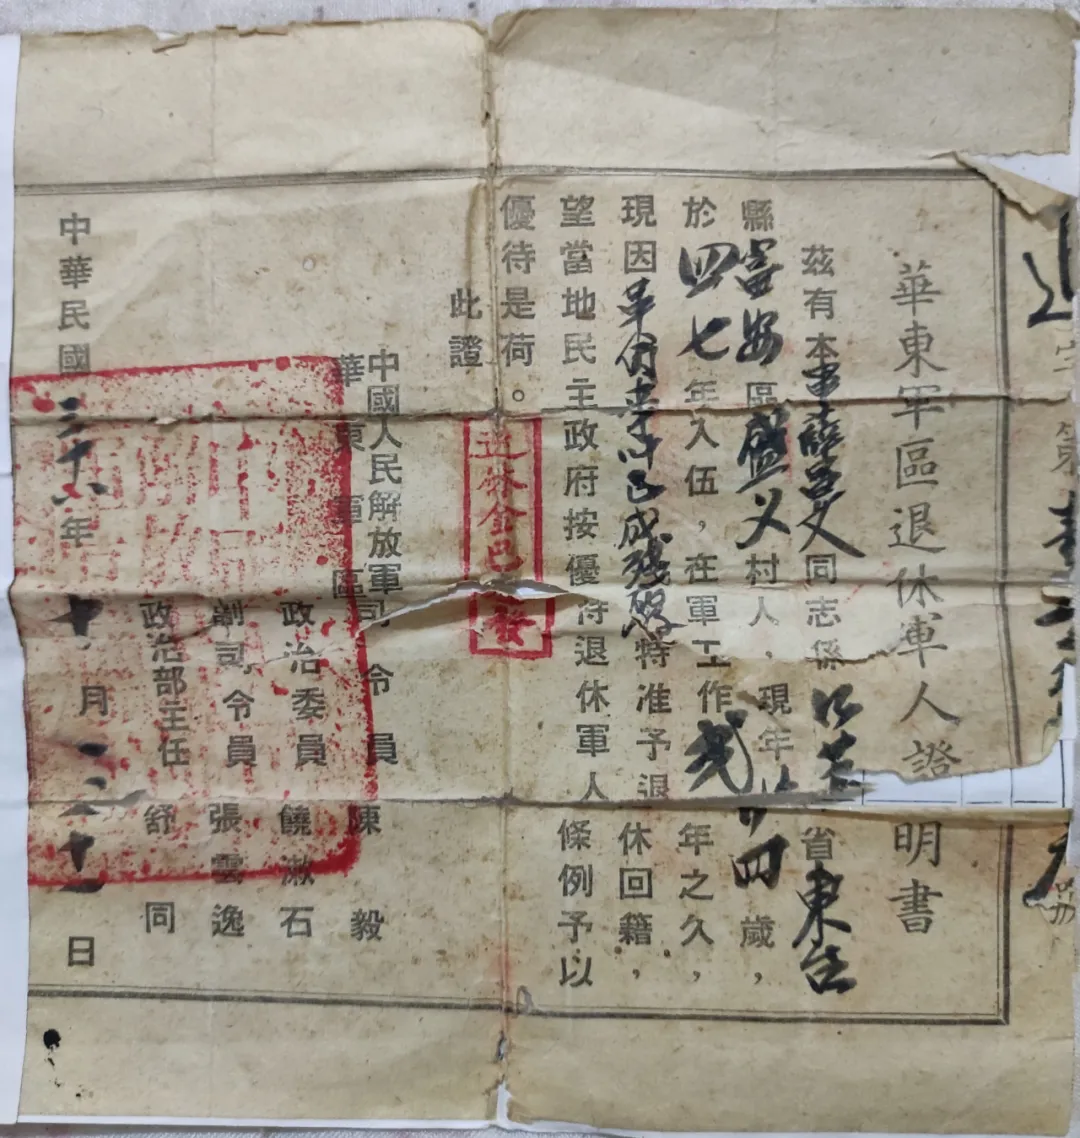 華東軍區退休軍人證明書
茲有本 同志係 省東台
縣富安區盛义村人，現年 四歲，
於四七年入伍，在軍工作弍年之久，
現因 已成殘廢特准予退休回籍，
望當地民主政府按優待退休軍人條例予以
優待是荷。
此證
退休金已發
中國人民解放軍
華東軍區司令員陳毅
政治委員饒漱石
副司令員張雲逸
政治部主任舒同
中華民國三十 年十月二 日
第
號